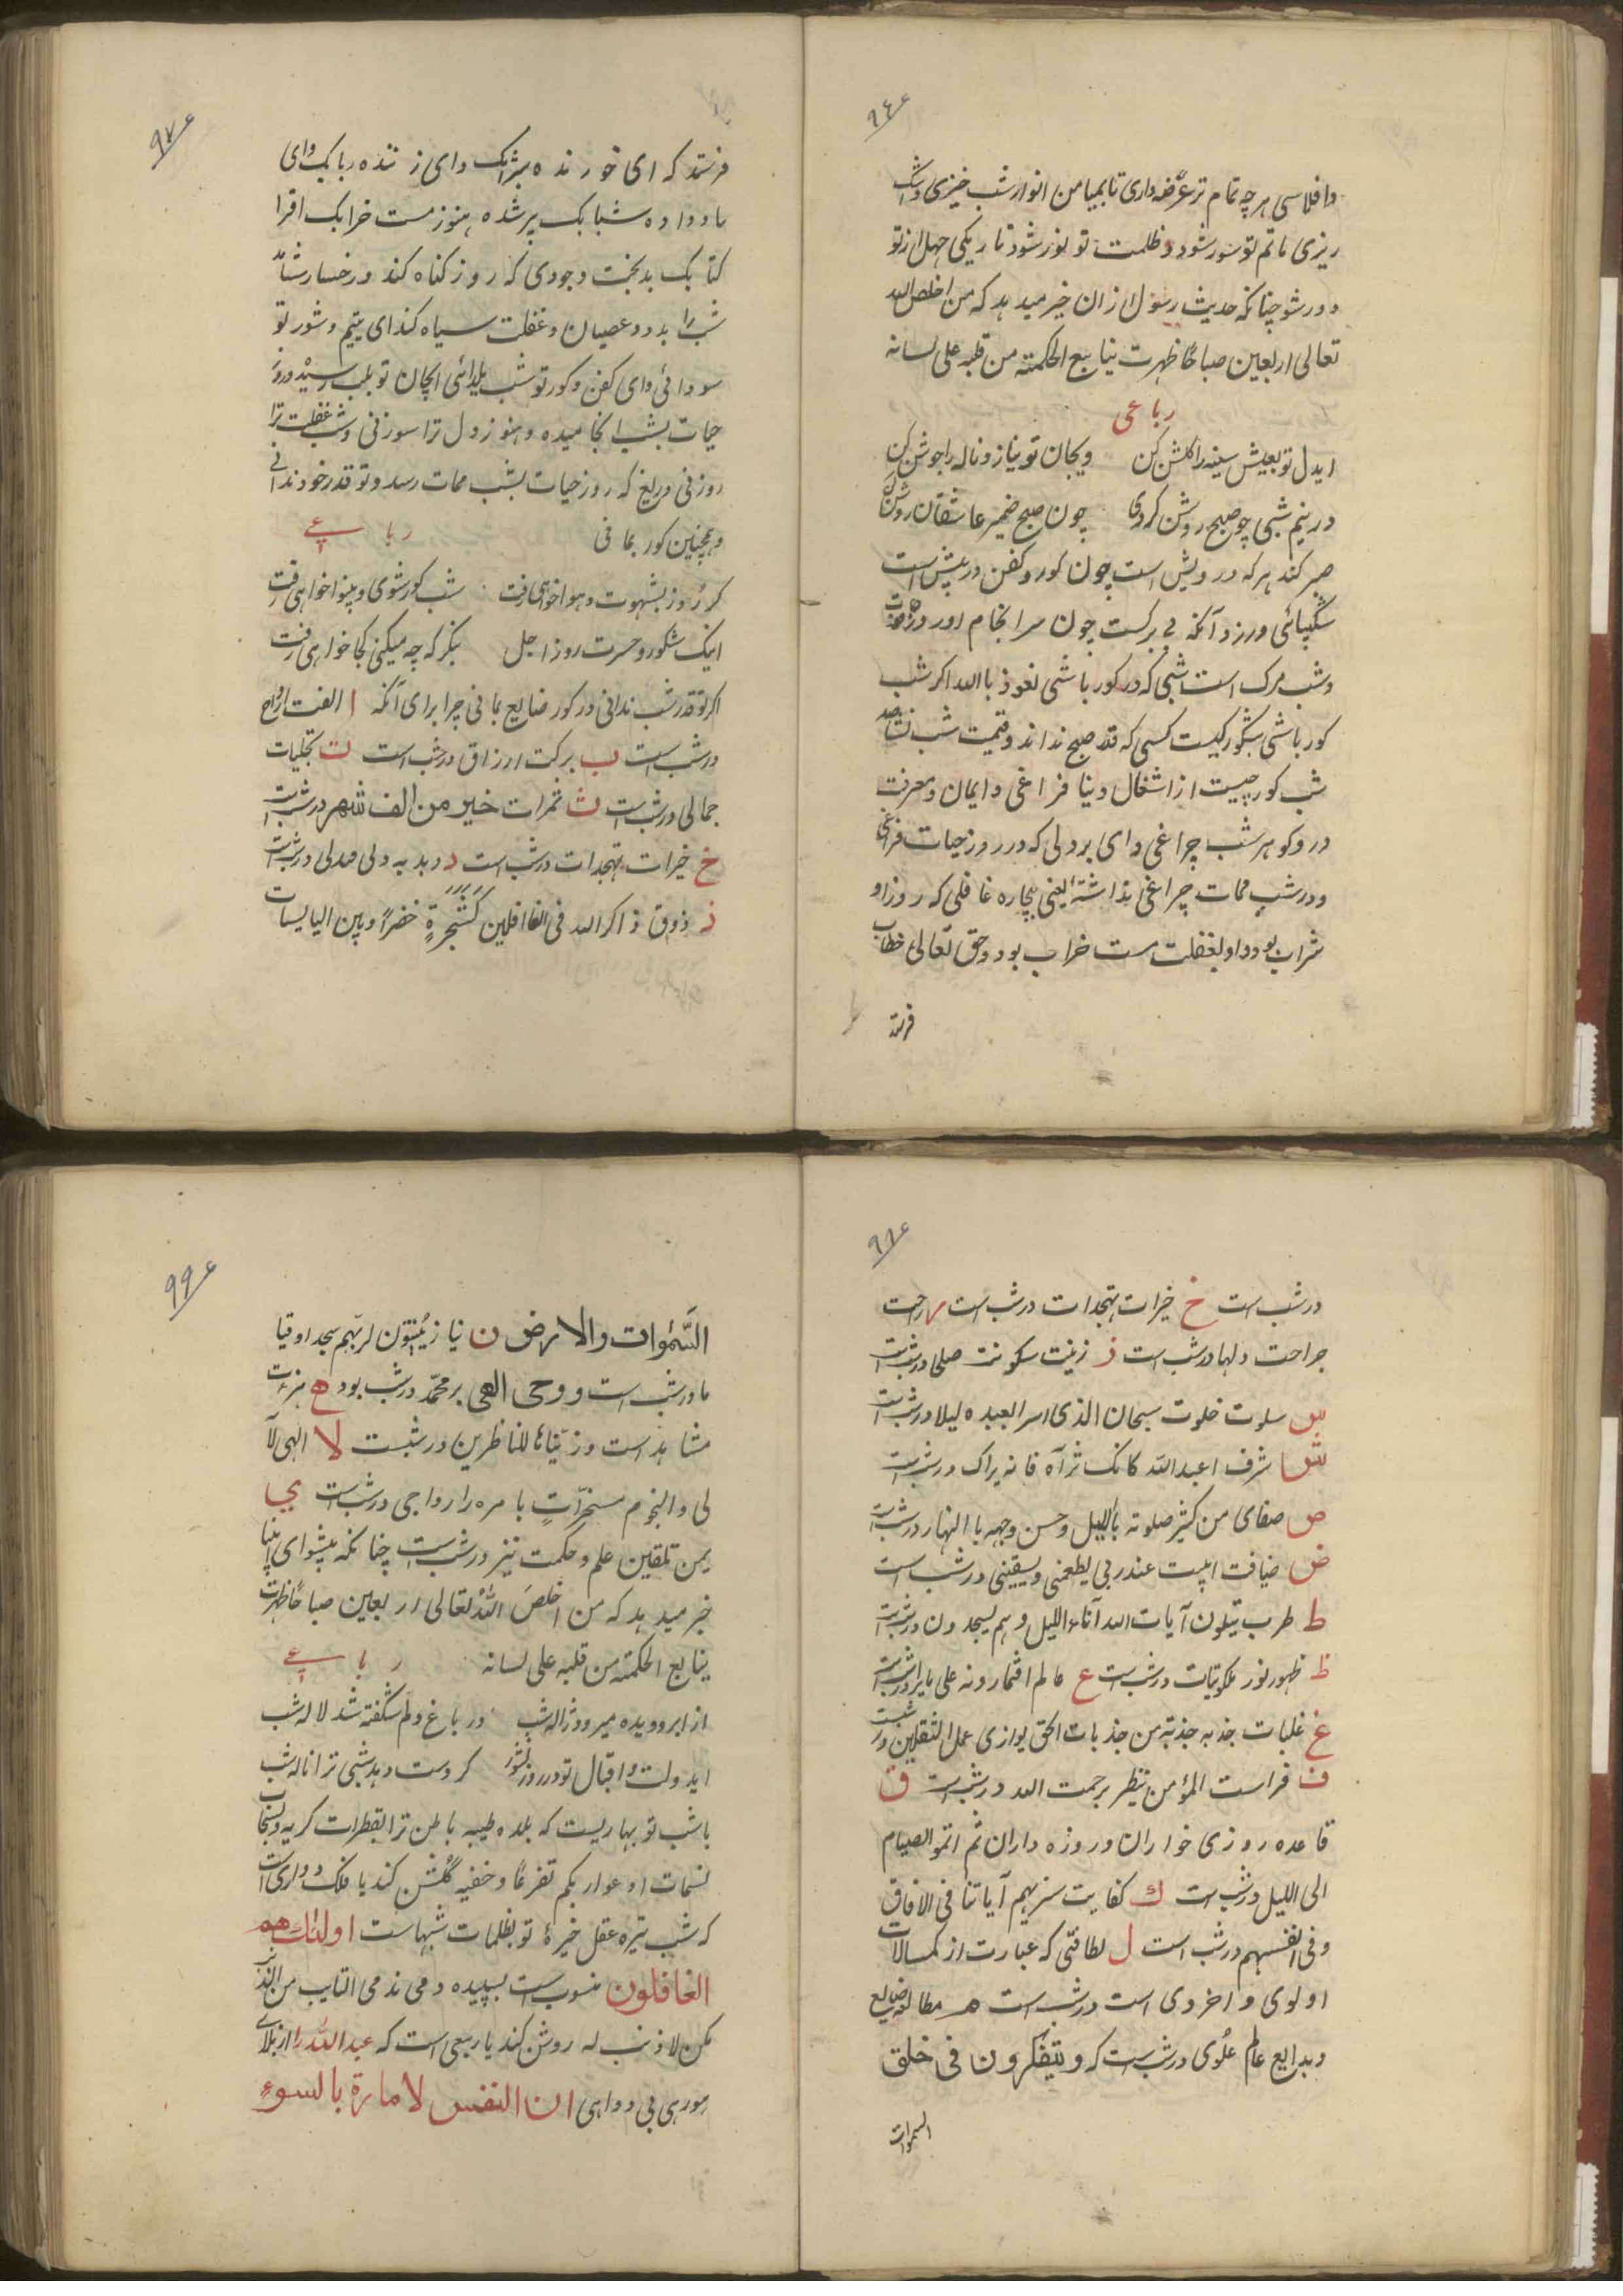 ۹۶
وافلاسی هرچه تمام تر عرضه داری تا بمیامن انوار شب خیزی و اشک
ریزی ماتم تو سور شود و ظلمت تو نور شود تاریکی جهل از تو
دور شو چنانکه حدیث رسول ازان خبر میدهد که من اخلص الله
تعالی اربعین صباحًا ظهرت ینابیع الحکمته من قلبه علی لسانه
رباعی
ایدل تو بعیش سینه را گلشن کن ویجان تو نیاز و ناله را جوشن کن
در نیم شبی چو صبح روشن کردی چون صبح ضمیر عاشقان روشن کن
صبر کند هر که درویش است چون کور و کفن در پیش است
شکیبائی ورزد آنکه بی برکست چون سرانجام او روز
وشب مرک است شبی که در کور باشی نعوذ باالله اکر شب
کور باشی شبکور کیست کسی که قدر صبح نداند و قیمت شب نشناسد
شب کور چیست از اشغال دنیا فراغی و ایمان و معرفت
در وکو هر شب چراغی وای بردلی که در روز حیات فراغی
و در شب ممات چراغی نداشته یعنی بیچاره غافلی که روز او
شراب بود و او بغفلت مست خراب بود و حق تعالی خطاب
فرستد
۹۷
فرستد که ای خورنده شرابک وای زننده ربابک وای
باد داده شبابک پیر شده هنوز مست خرابک اقرا
کتابک بدبخت وجودی که روز کناه کند و رخسار شاهد
شب را بدود عصیان و غفلت سیاه کند ای یتیم و شور تو
سودائی وای کفن و کور تو شب یلدائی ایجان تو بلب رسیده و روز
حیات بشب انجامیده و هنوز دل ترا سوزنی و شب غفلت ترا
روزنی دریغ که روز حیات بشب ممات رسد و تو قدر خود ندانی
وهمچنین کور بمانی رباعی
کر روز بشهوت و هوا خواهی رفت شب کور شوی و بینوا خواهی رفت
اینک شکور و حسرت روز اجل بنکر که چه میکنی کجا خواهی رفت
اکر تو قدر شب ندانی در کور ضایع بمانی چرا برای آنکه ا الفت ارواح
در شب است ب برکت ارزاق در شب است ت تجلیات
جمالی در شب است ث ثمرات خیر من الف شهر در شب است
خ خیرات تهجدات در شب است د دبدبه دلی فدلی در شب است
ذ ذوق ذاکر الله فی الغافلین کشجرةٍ خضرًا وبین الیابسات
۹۸
در شب است خ خیرات تهجدات در شب است ر راحت
جراحت دلها در شب است ز زینت سکونت صلحا در شب است
س سلوت خلوت سبحان الذی اسرا بعبده لیلا در شب است
ش شرف اعبد الله کانک تراه فانه یراک در شب است
ص صفای من کثیر صلوته بااللیل وحسن وجهه باالنهار در شب است
ض ضیافت ابیت عند ربی یطعمنی ویسقینی در شب است
ط طرب یتلون آیات الله آناء اللیل وهم یسجدون در شب است
ظ ظهور نور ملکوتیات در شب است ع عالم افتمارونه علی مایرا در شب است
غ غلبات جذبه جذبته من جذبات الحق یوازی عمل الثقلین در شبست
ف فراست المؤمن ینظر برحمت الله در شب است ق
قاعده روزی خواران و روزه داران ثم اتموالصیام
الی اللیل در شب است ك کفایت سنریهم آیاتنا فی الافاق
وفی انفسهم در شب است ل لطافتی که عبارت از کمسالات
اولوی و اخروی است در شب است م مطالعه ضایع
وبدایع عالم علوی در شب است که ویتفکرون فی خلق
السموات
۹۹
السموات والارض ن نیاز یبیتون لربهم سجدا وقیا
ما در شب است و وحی الهی بر محمد در شب بود ه هزت
مشاهد است وزیناها للناظرین در شبست لا الهی لآ
لی والنجوم مسخراتٍ بامره را رواجی در شب است ی
یمن تلقین علم و حکمت نیز در شب است چنانکه پیشوای انبیا
خبر میدهد که من اخلص الله تعالی اربعین صباحًا ظهرت
ینابیع الحکمته من قلبه علی لسانه رباعی
از ابر دویده میرود ژاله شب در باغ دلم شکفته شد لاله شب
ایدولت و اقبال تو در روز نشور کر دست دهد شبی ترا ناله شب
یا شب تو بهاریست که بلده طیبه باطن ترا بقطرات کریه
نسمات ادعوا ربکم تضرعًا وخفیه گلشن کند یا فلک دواری است
که شب تیره عقل خیرهٔ تو بظلمات شبهاست اولئك هم
الغافلون منسوب است بسپیده دمی ندمی التایب من الذنب
کمن لا ذنب له روشن کند یا ربیعی است که عبد الله را از بلای
مورهی بی دواهی ان النفس لامارة بالسوء